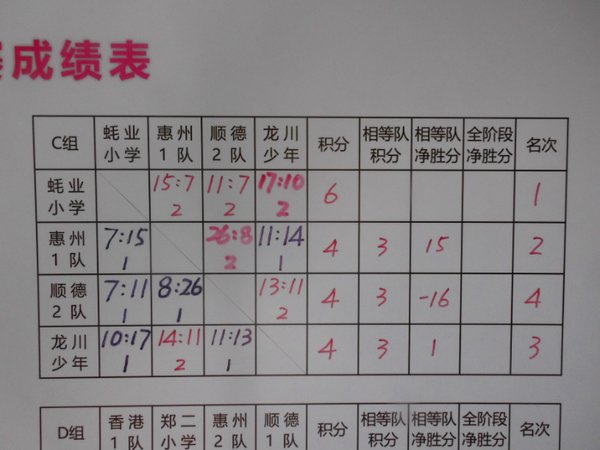 成绩表
C组 蚝业小学 惠州1队 顺德2队 龙川少年 积分 相等队积分 相等队净胜分 全阶段净胜分 名次
蚝业小学 15:7 2 11:7 2 17:10 2 6 1
惠州1队 7:15 1 26:8 2 11:14 1 4 3 15 2
顺德2队 7:11 1 8:26 1 13:11 2 4 3 -16 4
龙川少年 10:17 1 14:11 2 11:13 1 4 3 1 3
D组 香港1队 郑二小学 惠州2队 顺德1队 积分 相等队积分 相等队净胜分 全阶段净胜分 名次